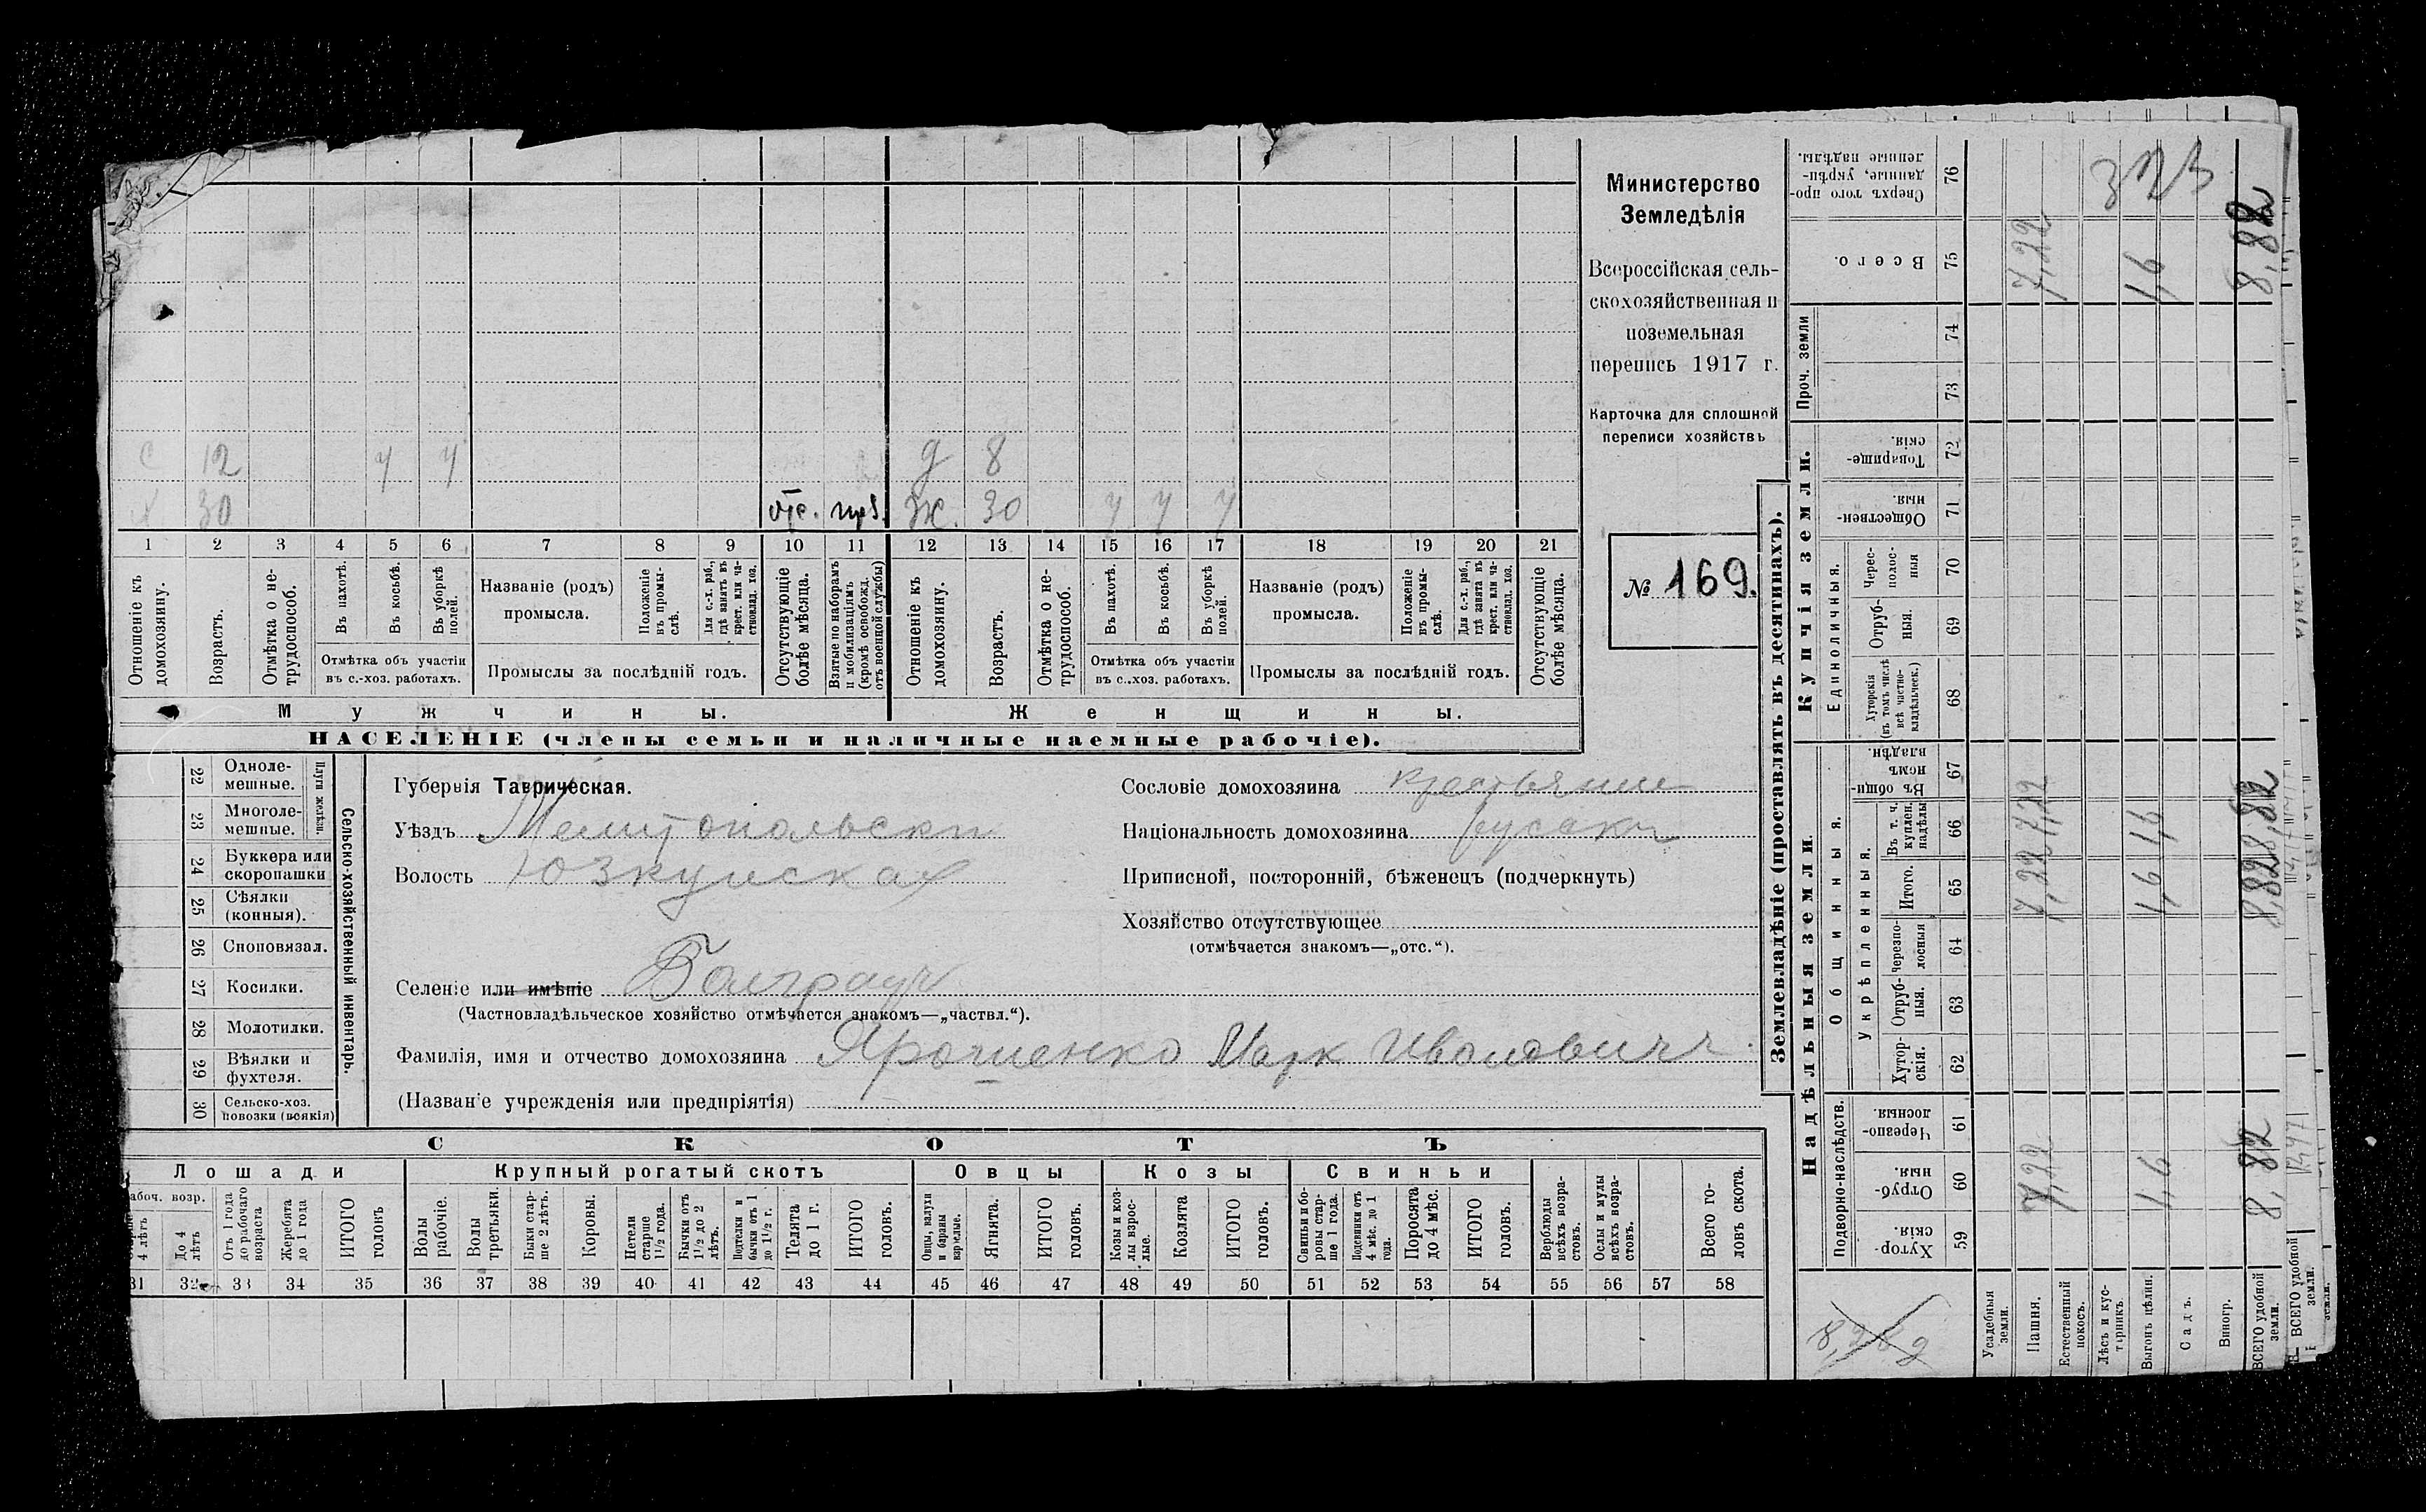 Министерство
Земледѣлія
Всероссійская сель-
скохозяйственная и
поземельная
перепись 1917 г.
Карточка для сплошной
переписи хозяйствъ
№ 169.
с 12 ч ч д 8
х 30 отс. приз. ж. 30 ч ч ч
1 2 3 4 5 6 7 8 9 10 11 12 13 14 15 16 17 18 19 20 21
Отношеніе къ домохозяину.
Возрастъ.
Отмѣтка о не-трудоспособ.
Въ пахотѣ.
Въ косьбѣ.
Въ уборкѣ полей.
Отмѣтка объ участіи въ с.-хоз. работахъ.
Названіе (родъ) промысла.
Положеніе въ промы-слѣ.
Для с.-х. раб., гдѣ занятъ въ крест. или ча-стновлад. хоз.
Промыслы за послѣдній годъ.
Отсутствующіе болѣе мѣсяца.
Взятые по наборамъ и мобилизаціямъ (кромѣ освобожд. отъ военной службы)
Отношеніе къ домохозяину.
Возрастъ.
Отмѣтка о не-трудоспособ.
Въ пахотѣ.
Въ косьбѣ.
Въ уборкѣ полей.
Отмѣтка объ участіи въ с.-хоз. работахъ.
Названіе (родъ) промысла.
Положеніе въ промы-слѣ.
Для с.-х. раб., гдѣ занята въ крест. или ча-стновлад. хоз.
Промыслы за послѣдній годъ.
Отсутствующіе болѣе мѣсяца.
Мужчины. Женщины.
НАСЕЛЕНІЕ (члены семьи и наличные наемные рабочіе).
22 Одноле-мешные.
23 Многоле-мешные.
Плуги желѣзн.
24 Буккера или скоропашки
25 Сѣялки (конныя).
26 Сноповязал.
27 Косилки.
28 Молотилки.
29 Вѣялки и фухтеля.
30 Сельско-хоз. повозки (всякія)
Сельско-хозяйственный инвентарь.
Губернія Таврическая.
Уѣздъ Мелитопольски
Волость Юзкуиская
Селеніе или имѣніе Болградъ
(Частновладѣльческое хозяйство отмѣчается знакомъ—„частвл.“).
Фамилія, имя и отчество домохозяина Ярошенко Марк Ивановичъ
(Названіе учрежденія или предпріятія)
Сословіе домохозяина крестьянин
Національность домохозяина русски
Приписной, посторонній, бѣженецъ (подчеркнуть)
Хозяйство отсутствующее
(отмѣчается знакомъ—„отс.“).
СКОТЪ
Лошади Крупный рогатый скотъ Овцы Козы Свиньи
4 лѣтъ
До 4 лѣтъ
Отъ 1 года до рабочаго возраста
Жеребята до 1 года
ИТОГО головъ
Волы рабочіе.
Волы третьяки.
Быки стар-ше 2 лѣтъ.
Коровы.
Нетели старше 1½ года.
Бычки отъ 1½ до 2 лѣтъ.
Подтелки и бычки отъ 1 до 1½ г.
Телята до 1 г.
ИТОГО головъ.
Овцы, валухи и бараны взрослые.
Ягнята.
ИТОГО головъ.
Козы и коз-лы взрос-лые.
Козлята
ИТОГО головъ.
Свиньи и бо-ровы стар-ше 1 года.
Подсвинки отъ 4 мѣс. до 1 года.
Поросята до 4 мѣс.
ИТОГО головъ.
Верблюды всѣхъ возра-стовъ.
Ослы и мулы всѣхъ возра-стовъ.
Всего го-ловъ скота.
31 32 33 34 35 36 37 38 39 40 41 42 43 44 45 46 47 48 49 50 51 52 53 54 55 56 57 58
Землевладѣніе (проставлять въ десятинахъ).
Надѣльныя земли. Купчія земли. Проч. земли
Подворно-наслѣдств.
Общинныя.
Укрѣпленныя.
Единоличныя.
Хутор-скія. 59
Отруб-ныя. 60
Черезпо-лосныя 61
Хутор-скія. 62
Отруб-ныя. 63
Черезпо-лосныя 64
Итого. 65
Въ т. ч. куплен. надѣлы 66
Въ общин-номъ владѣн. 67
Хуторскія (въ томъ числѣ всѣ частно-владѣльческ.) 68
Отруб-ныя. 69
Черес-полос-ныя 70
Обществен-ныя. 71
Товарище-скія. 72
73
74
Всего. 75
Сверхъ того про-данные, укрѣп-ленные надѣлы. 76
Усадебныя земли.
Пашня. 7,22 7,22 7,22 7,22
Естественный покосъ.
Лѣсъ и кус-тарникъ.
Выгонъ цѣлин. 1,6 1,6 1,6 1,6
Садъ.
Виногр.
ВСЕГО удобной земли. 8,82 8,82 8,82 8,82
ВСЕГО удобной земли.
323